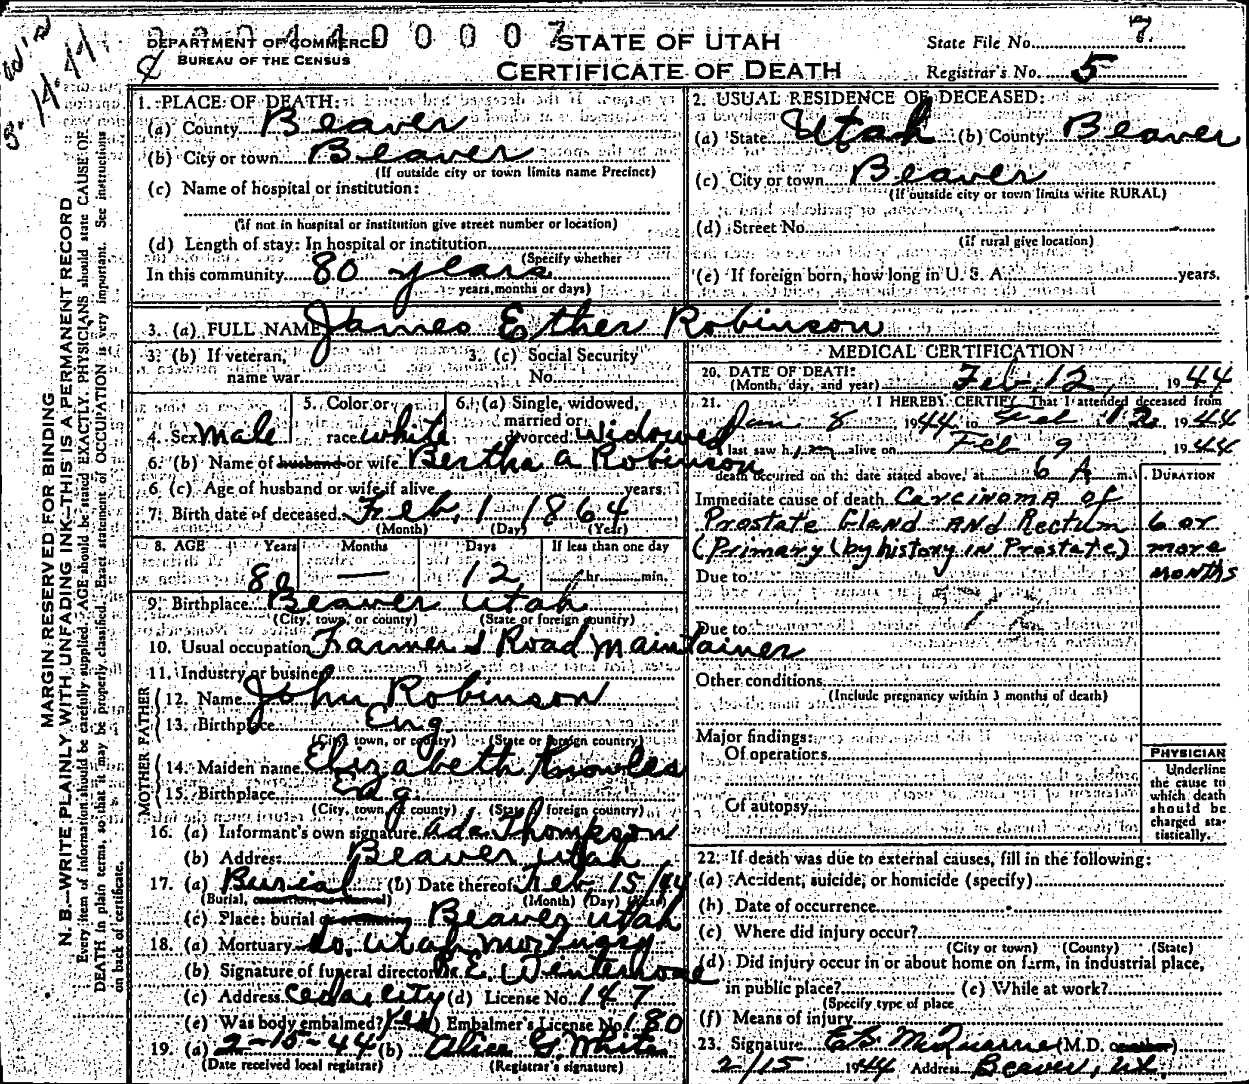 7
DEPARTMENT OF COMMERCE
BUREAU OF THE CENSUS
STATE OF UTAH
CERTIFICATE OF DEATH
State File No. 7
Registrar's No. 5
MARGIN RESERVED FOR BINDING
N. B.—WRITE PLAINLY WITH UNFADING INK—THIS IS A PERMANENT RECORD
Every item of information should be carefully supplied. AGE should be stated EXACTLY. PHYSICIANS should state CAUSE OF
DEATH in plain terms, so that it may be properly classified. Exact statement of OCCUPATION is very important. See instructions
on back of certificate.
1. PLACE OF DEATH:
(a) County Beaver
(b) City or town Beaver
(If outside city or town limits name Precinct)
(c) Name of hospital or institution:
(If not in hospital or institution give street number or location)
(d) Length of stay: In hospital or institution
(Specify whether
In this community 80 years
years, months or days)
2. USUAL RESIDENCE OF DECEASED:
(a) State Utah (b) County Beaver
(c) City or town Beaver
(If outside city or town limits write RURAL)
(d) Street No.
(If rural give location)
(e) If foreign born, how long in U. S. A. years.
3. (a) FULL NAME James Ether Robinson
3. (b) If veteran,
name war
3. (c) Social Security
No.
4. Sex male
5. Color or
race white
6. (a) Single, widowed,
married or
divorced Widowed
6. (b) Name of husband or wife Bertha A Robinson
6 (c) Age of husband or wife if alive years
7. Birth date of deceased Feb. 1 1864
(Month) (Day) (Year)
8. AGE Years Months Days If less than one day
80 — 12 hr. min.
9. Birthplace Beaver Utah
(City, town, or county) (State or foreign country)
10. Usual occupation Farmer & Road maintainer
11. Industry or business
FATHER
12. Name John Robinson
13. Birthplace Eng
(City, town, or county) (State or foreign country)
MOTHER
14. Maiden name Elizabeth Knowles
15. Birthplace Eng.
(City, town, or county) (State or foreign country)
16. (a) Informant's own signature Ada Thompson
(b) Address Beaver Utah
17. (a) Burial (b) Date thereof Feb. 15/44
(Burial, cremation or removal) (Month) (Day) (Year)
(c) Place: burial or cremation Beaver Utah
18. (a) Mortuary So. Utah Mortuary
(b) Signature of funeral director
(c) Address Cedar City (d) License No. 147
(e) Was body embalmed? Yes (f) Embalmer's License No. 180
19. (a) 2-15-44 (b) Alice G. White
(Date received local registrar) (Registrar's signature)
MEDICAL CERTIFICATION
20. DATE OF DEATH:
(Month, day, and year) Feb 12, 1944
21. I HEREBY CERTIFY, That I attended deceased from
Jan 8 1944, to Feb 12, 1944
I last saw him alive on Feb 9 1944
death occurred on the date stated above, at 6 A m.
DURATION
Immediate cause of death Carcinoma of
Prostate Gland and Rectum 6 or
(Primary (by history in Prostate) more
Due to months
Due to
Other conditions
(Include pregnancy within 3 months of death)
Major findings:
Of operations
Of autopsy
PHYSICIAN
Underline
the cause to
which death
should be
charged sta-
tistically.
22. If death was due to external causes, fill in the following:
(a) Accident, suicide, or homicide (specify)
(b) Date of occurrence
(c) Where did injury occur?
(City or town) (County) (State)
(d) Did injury occur in or about home on farm, in industrial place,
in public place? (e) While at work?
(Specify type of place
(f) Means of injury
23. Signature McQuarrie (M.D. or other)
2/15 1944 Address Beaver, Ut.